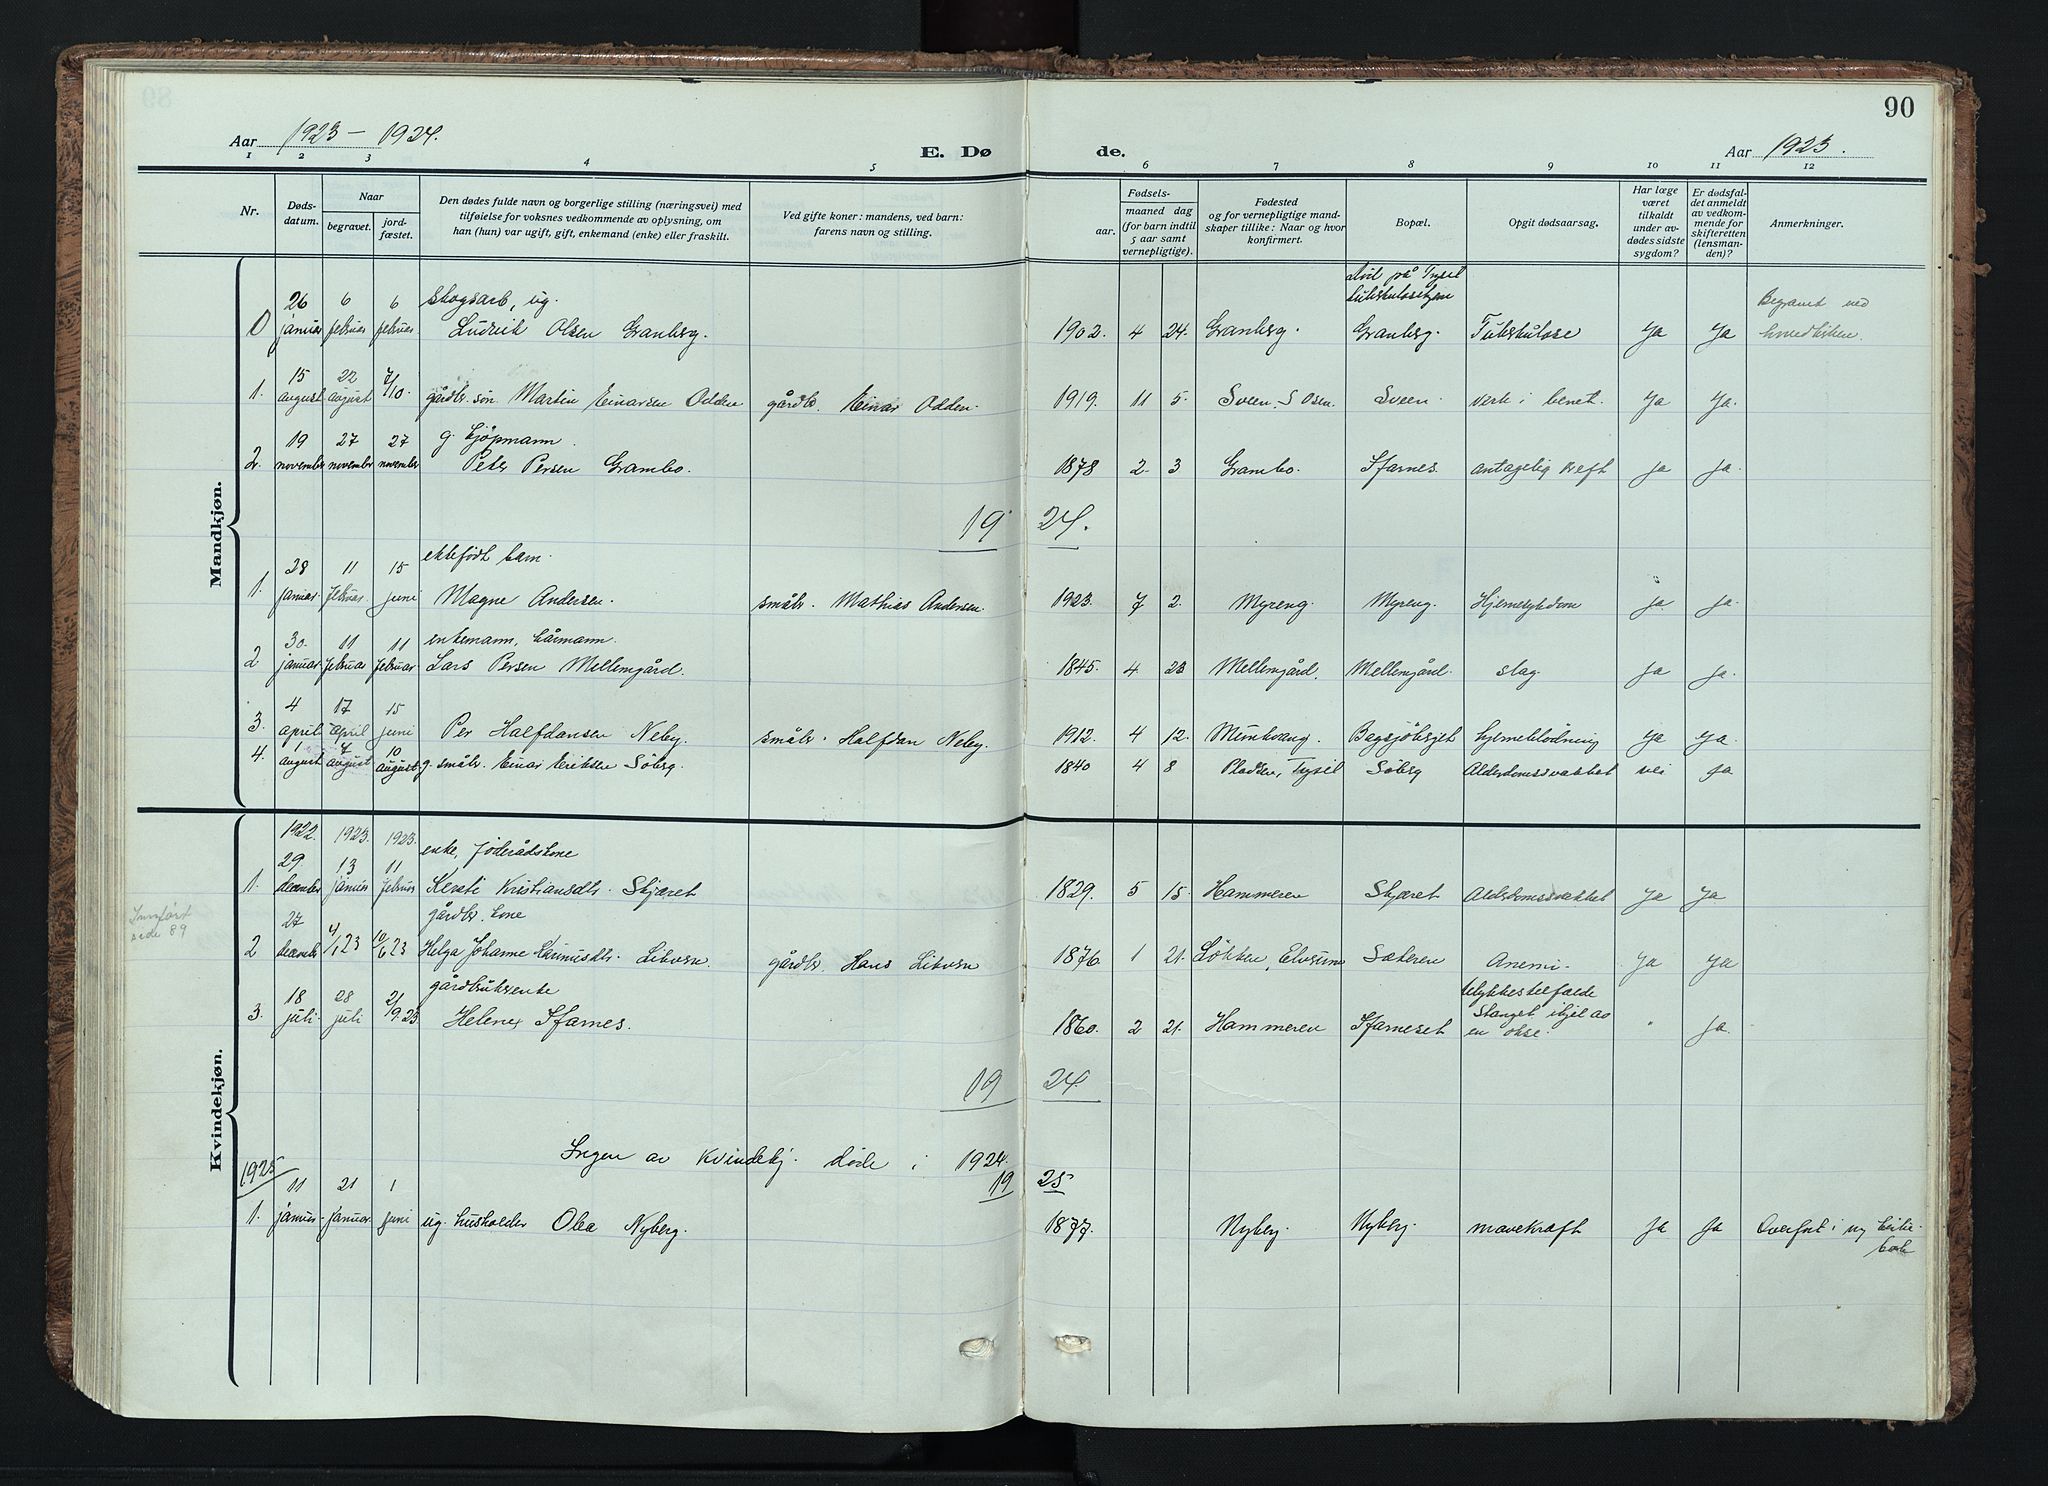 90
Aar 1923 – 1924.
E. Dø
de.
Aar 1923.
1 2 3 4 5 6 7 8 9 10 11 12
Nr.
Døds-
datum.
Naar
begravet.
jord-
fæstet.
Den dødes fulde navn og borgerlige stilling (næringsvei) med
tilføielse for voksnes vedkommende av oplysning, om
han (hun) var ugift, gift, enkemand (enke) eller fraskilt.
Ved gifte koner: mandens, ved barn:
farens navn og stilling.
Fødsels-
aar.
maaned dag
(for barn indtil
5 aar samt
vernepligtige).
Fødested
og for vernepligtige mand-
skaper tillike: Naar og hvor
konfirmert.
Bopæl.
Opgit dødsaarsag.
Har læge
været
tilkaldt
under av-
dødes sidste
sygdom?
Er dødsfal-
det anmeldt
av vedkom-
mende for
skifteretten
(lensman-
den)?
Anmerkninger.
Mandkjøn.
død på Trysil
26 6 6 skogsarb, ug. Begravet ved
0 januar februar februar. Ludvik Olsen Granberg. 1902. 4 24. Granberg. Granberg. Tuberkulose Ja Ja
15 22 7/10.
1. august august gårdbr. søn Martin Einarsen Odden gårdbr. Einar Odden. 1919. 11 5. Sveen, S Osen. Sveen. verk i benet. Ja Ja.
19 27 27 g. kjøpmann.
2. november november november Peter Persen Grambo. 1878 2. 3 Grambo. antagelig kreft ja Ja.
19 24.
28 11 15 ektefødt barn.
1. januar. februar. juni Magne Andersen. småbr. Mathias Andersen. 1923. 7 2. Myreng. Myreng. Hjernesykdom ja Ja.
30. 11 11 enkemann, kårmann.
2 januar. februar februar Lars Persen Mellemgård. 1845. 4 23 Mellemgård. Mellemgård. slag. Ja Ja.
4 17 15
3. april april juni Per Halfdansen Neby. småbr. Halfdan Neby. 1912. 4 12. hjerneblødning Ja Ja.
1 7 10
4. august august august. g. småbr. Einar Eriksen Søberg. 1840 4 8 Pladsen, Trysil Søberg Alderdomssvakhet nei Ja
Kvindekjøn.
1922. 1923. 1923.
29. 13 11 enke, føderådskone
1. december januar februar Kersti Kristiansdtr. Skjæret 1829. 5 15. Hammeren Skjæret Alderdomssvakhet Ja Ja
Innført
side 89
27 gårdbr. kone
2 december 4/1 23 10/6 23 Helga Johanne Rasmusdtr. gårdbr. Hans 1876. 1 21. Løkken, Elverum Sæteren Anemi. Ja Ja
18 28 21 gårdbrukerenke ulykkestilfælde
3. juli. juli 1923 Helene 1860. 2 21. Hammeren Stanget ihjel av " Ja.
en okse.
19 24
Ingen av Kvindekj. døde i 1924.
1925 19 25
11 21 1
1. januar. januar. juni ug. husholder Olea Nyberg. 1877. Nyberg Nyberg. mavekræft Ja Ja Overført i ny kirke-
bok